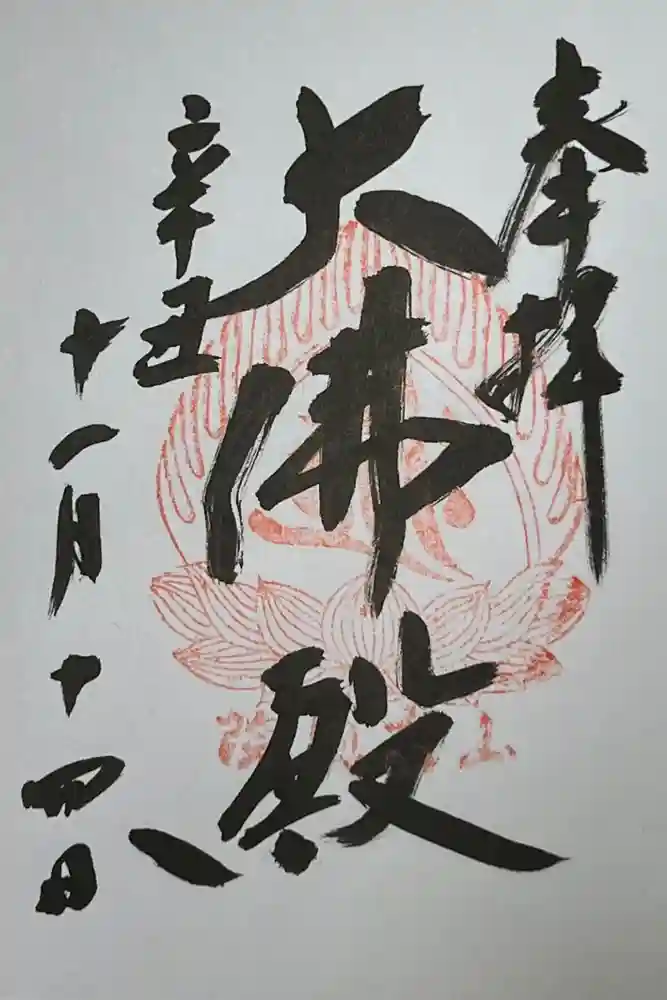 奉拝
大佛殿
辛丑
十一月十四日